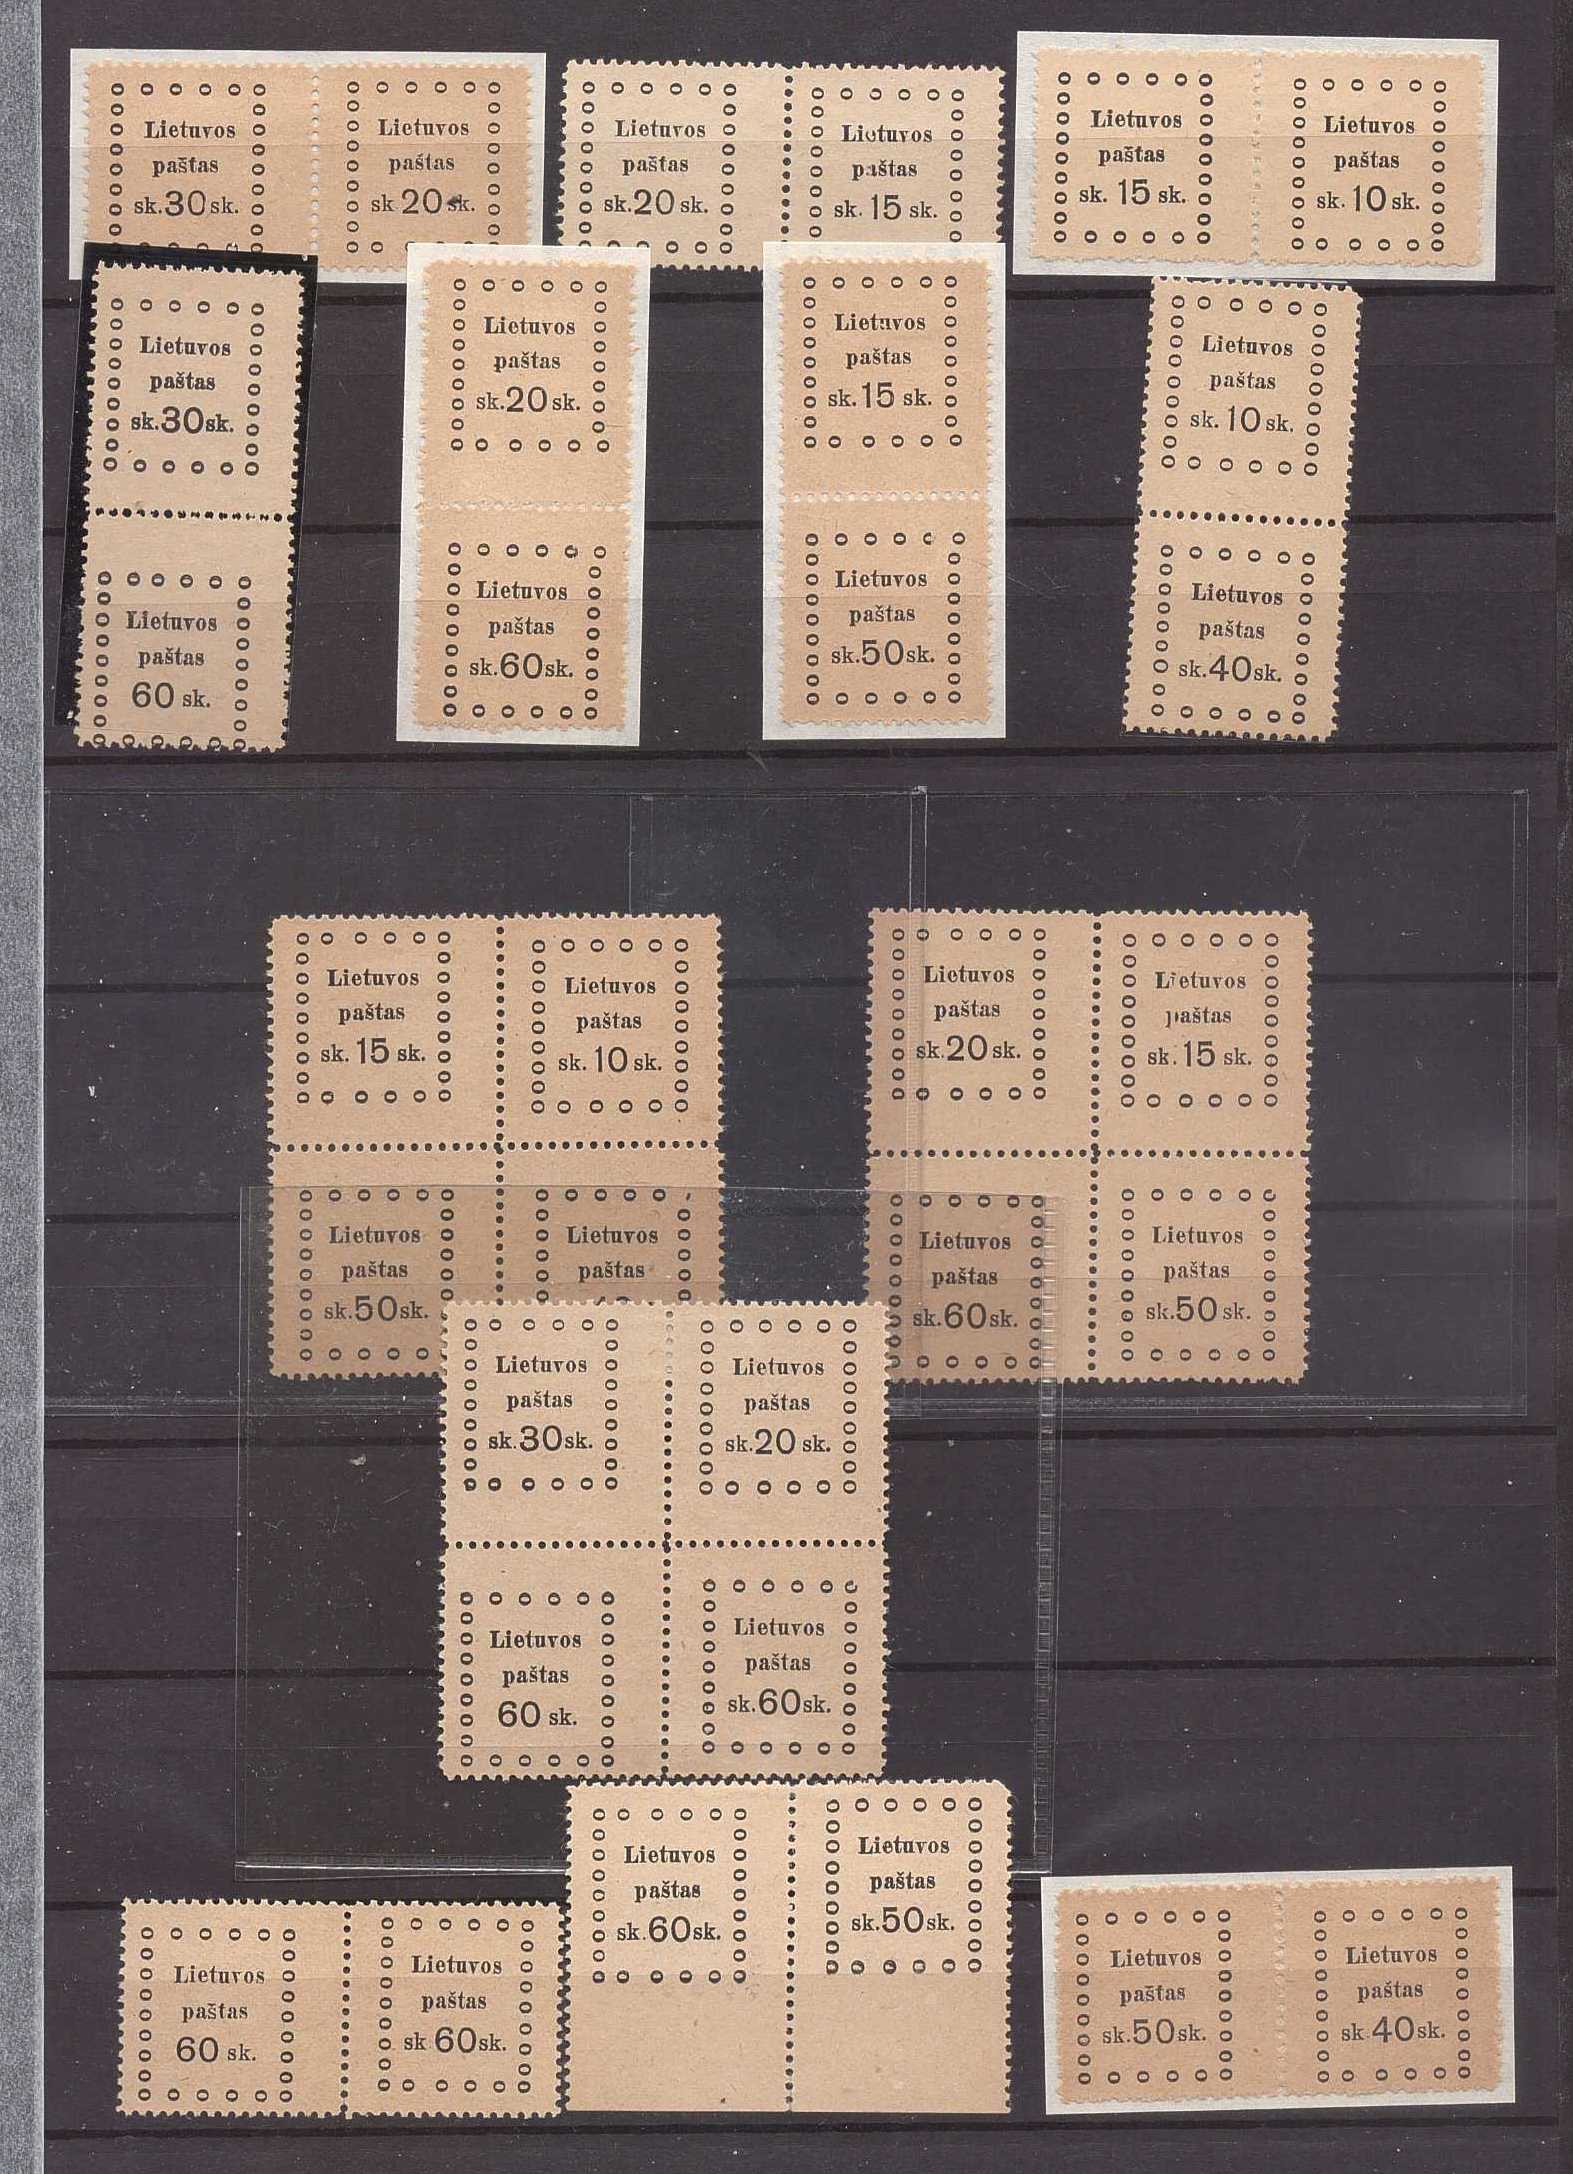 Lietuvos
paštas
sk.30sk.
Lietuvos
paštas
sk 20sk.
Lietuvos
paštas
sk.20sk.
Lietuvos
paštas
sk.15 sk.
Lietuvos
paštas
sk. 15 sk.
Lietuvos
paštas
sk.10sk.
Lietuvos
paštas
sk.30sk.
Lietuvos
paštas
60 sk.
Lietuvos
paštas
sk.20sk.
Lietuvos
paštas
sk.60sk.
Lietuvos
paštas
sk.15 sk.
Lietuvos
paštas
sk.50sk.
Lietuvos
paštas
sk.10sk.
Lietuvos
paštas
sk.40sk.
Lietuvos
paštas
sk.15 sk.
Lietuvos
paštas
sk.10sk.
Lietuvos
paštas
sk.50sk.
Lietuvos
paštas
Lietuvos
paštas
sk.20sk.
Lietuvos
paštas
sk.15 sk.
Lietuvos
paštas
sk.60sk.
Lietuvos
paštas
sk.50sk.
Lietuvos
paštas
sk.30sk.
Lietuvos
paštas
sk.20 sk.
Lietuvos
paštas
60 sk.
Lietuvos
paštas
sk.60sk.
Lietuvos
paštas
60 sk.
Lietuvos
paštas
sk 60sk.
Lietuvos
paštas
sk.60sk.
Lietuvos
paštas
sk.50sk.
Lietuvos
paštas
sk.50sk.
Lietuvos
paštas
sk.40sk.